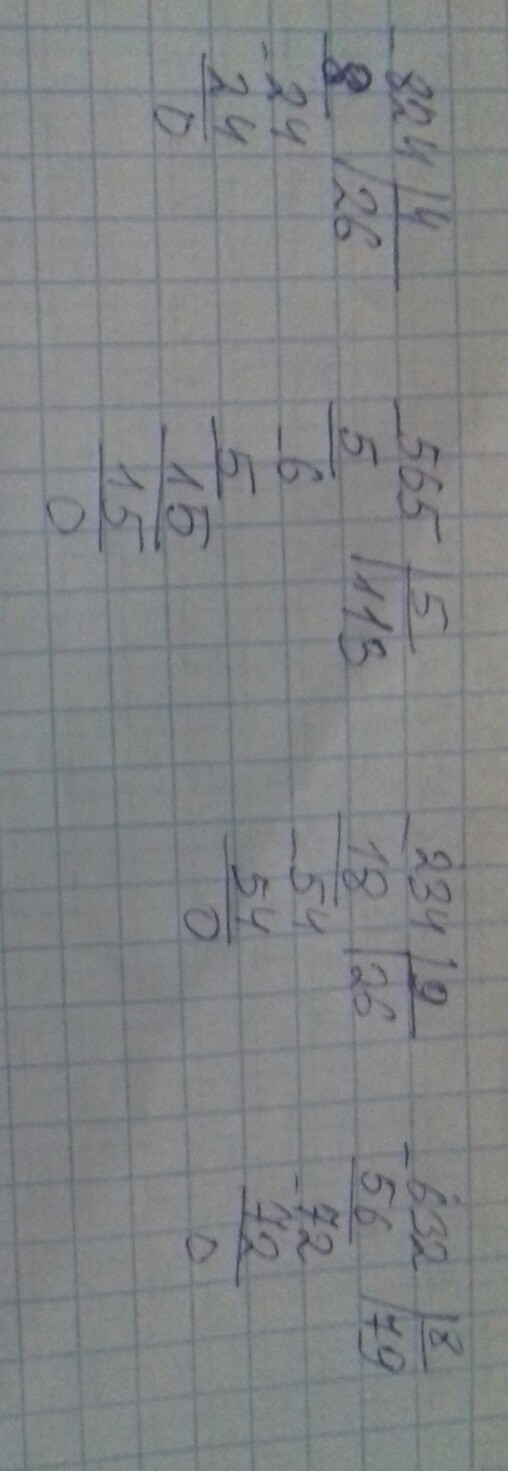 -824 |4
8 |26
-24
24
0
-565 |5
5 |113
-6
5
-15
15
0
-234 |9
18 |26
-54
54
0
-632 |8
56 |79
-72
72
0